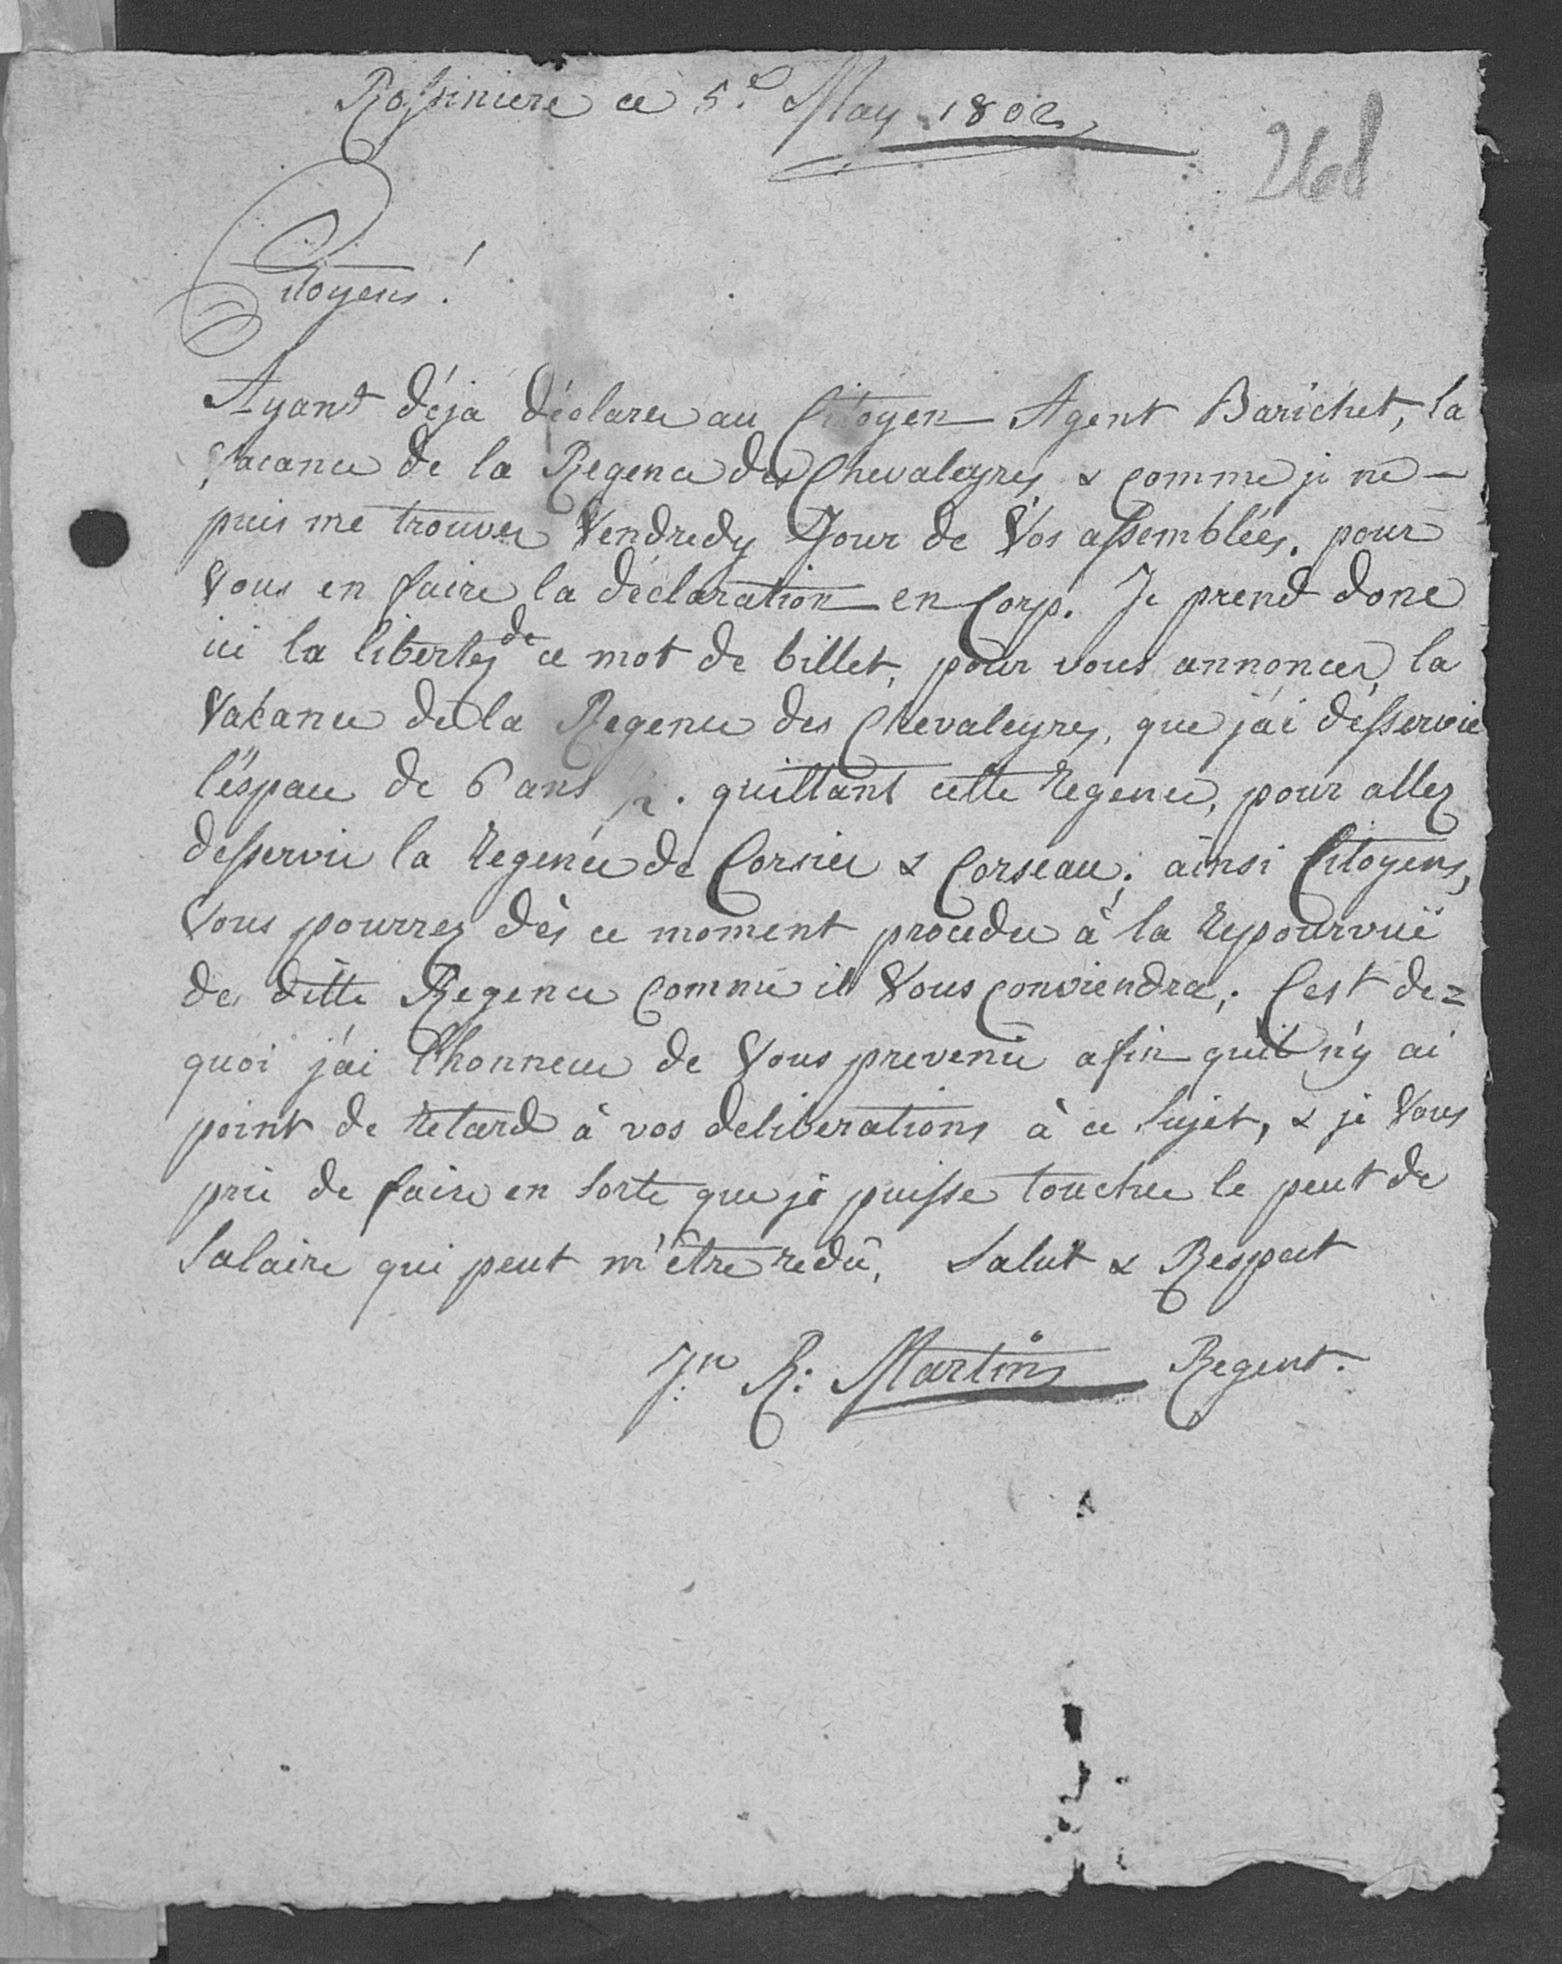 Rossiniere ce 5.e May 1802
268
Citoyens!
Ayant déja déclarer au Citoyen Agent Barichet, la
Vacance de la Regence des Chevaleyres & comme je ne
puis me trouver Vendredy Jour de Vos assemblées. pour
Vous en faire la déclaration en Corp. Je prend donc
ici la libertey de ce mot de billet, pour vous annoncer, la
Vacance de la Regence des Chevaleyres, que j'ai desservie
l'éspace de 6 ans ½. quittant cette regence, pour allez
desservir la regence de Corsier & Corseau; ainsi Citoyens,
Vous pourrez dès ce moment proceder à la repourvuë
de ditte Regence comme il Vous conviendra; C'est de=
quoi j'ai l'honneur de Vous prevenir afin qu'il n'y ai
point de retard à vos deliberations à ce sujet, & je Vous
prie de faire en sorte que je puisse toucher le peut de
Salaire qui peut m'être redû, Salut & Respect
Jn R: Martin Regent.